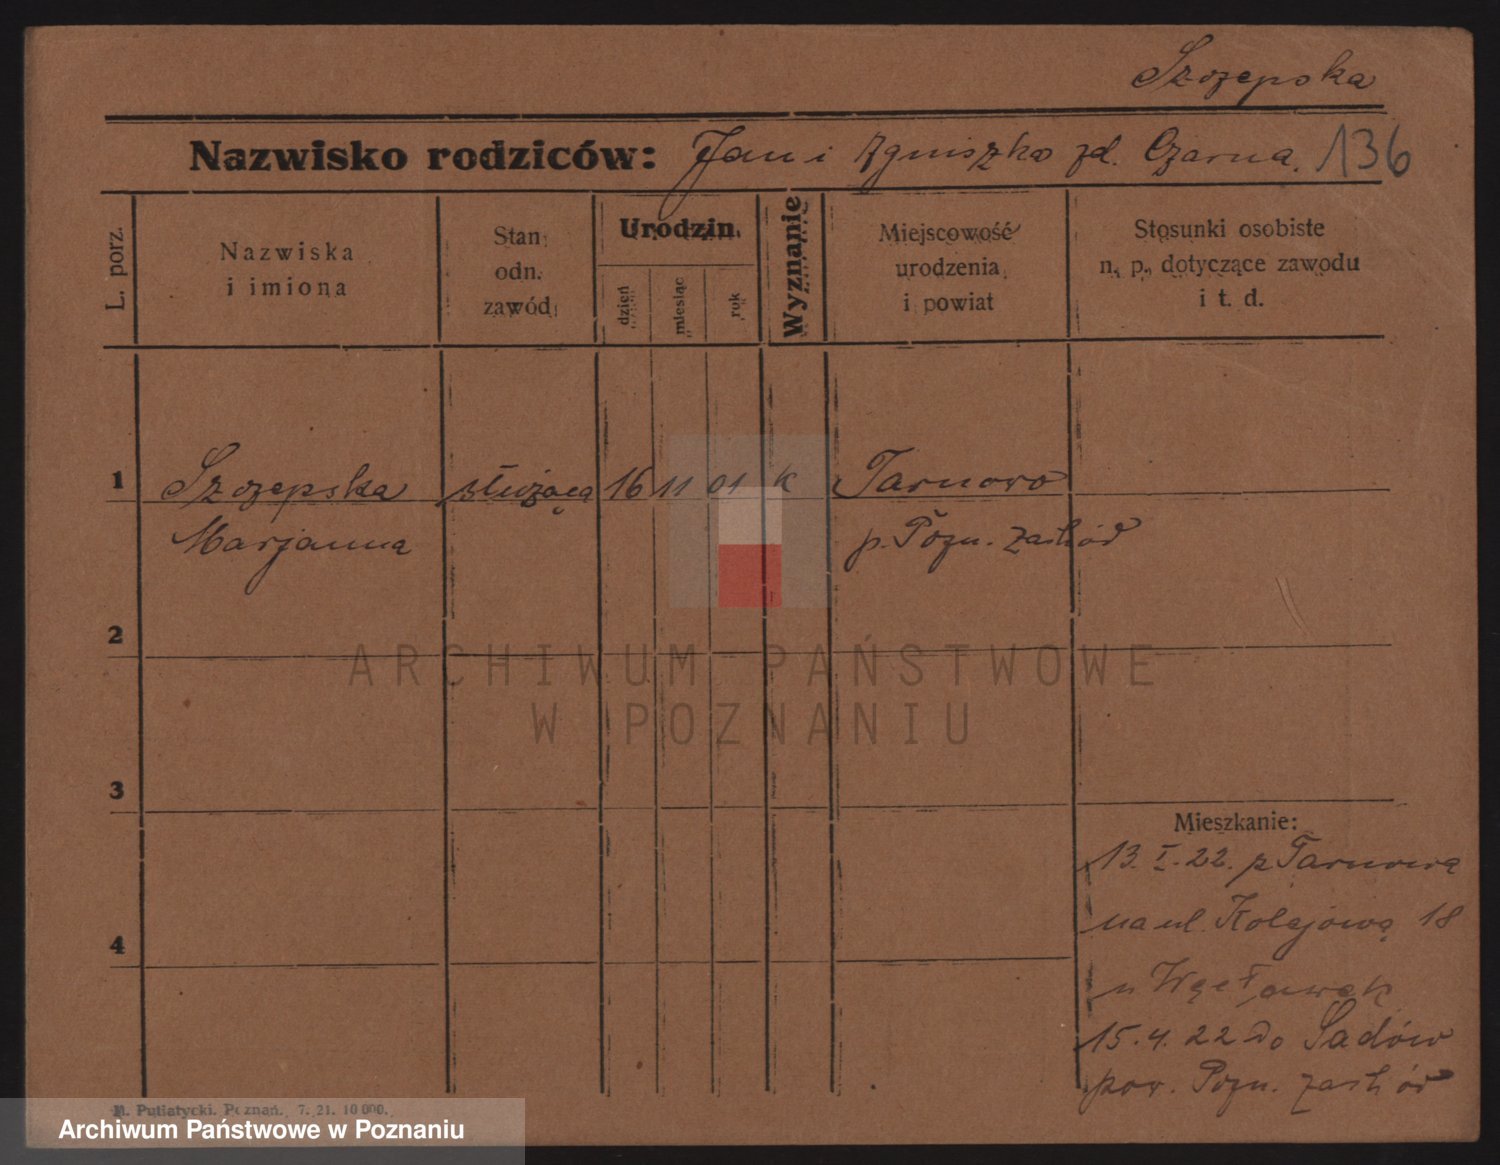 Szczepska
Nazwisko rodziców: Jan i Agniszka zd. Czarna. 136
L. porz.
Nazwiska
i imiona
Stan
odn.
zawód
Urodzin.
dzień
miesiąc
rok
Wyznanie
Miejscowość
urodzenia
i powiat
Stosunki osobiste
n. p. dotyczące zawodu
i t. d.
1 Szczepska służąca 16 11 01 K Tarnowo
Marjanna p. Pozn. zachód
2
ARCHIWUM PAŃSTWOWE
W POZNANIU
3
Mieszkanie:
13. I. 22. z Tarnowa
na ul. Kolejową 18
4
u
15. 4. 22 do Sadów
pow. Pozn. zachód
M. Putiatycki. Poznań. 7. 21. 10 000.
Archiwum Państwowe w Poznaniu